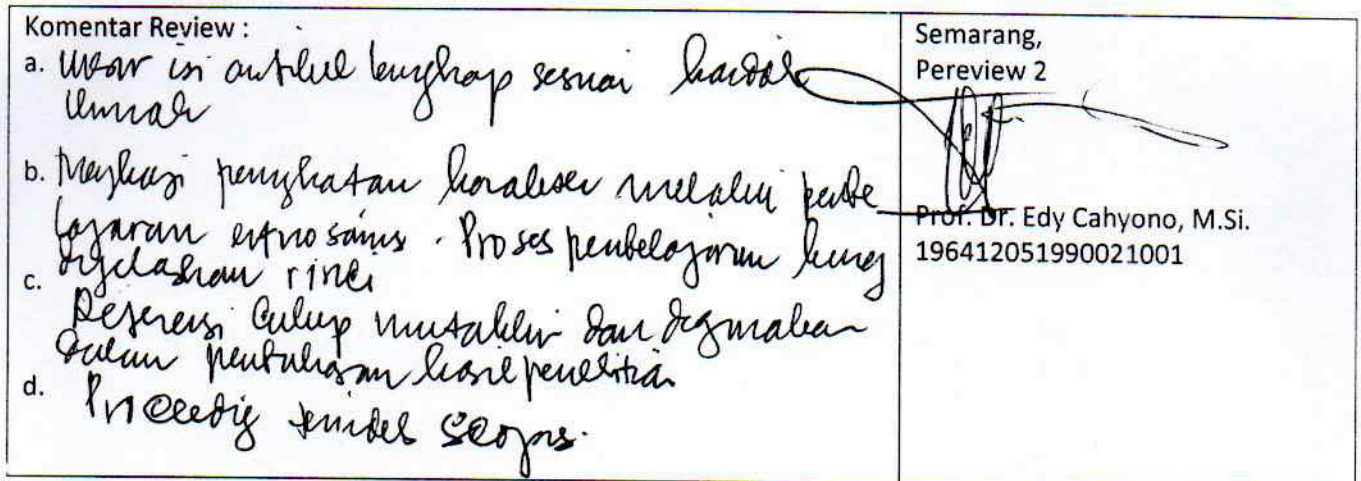 Komentar Review :
a. Unsur isi artikel lengkap sesuai kaidah
ilmiah
b. Mengkaji peningkatan karakter melalui pembe
lajaran etnosains. Proses pembelajaran kurang
dijelaskan rinci
c. Referensi cukup mutakhir dan digunakan
dalam pembahasan hasil penelitian
d. Proceedig terindeks Scopus.
Semarang,
Pereview 2
Prof. Dr. Edy Cahyono, M.Si.
196412051990021001